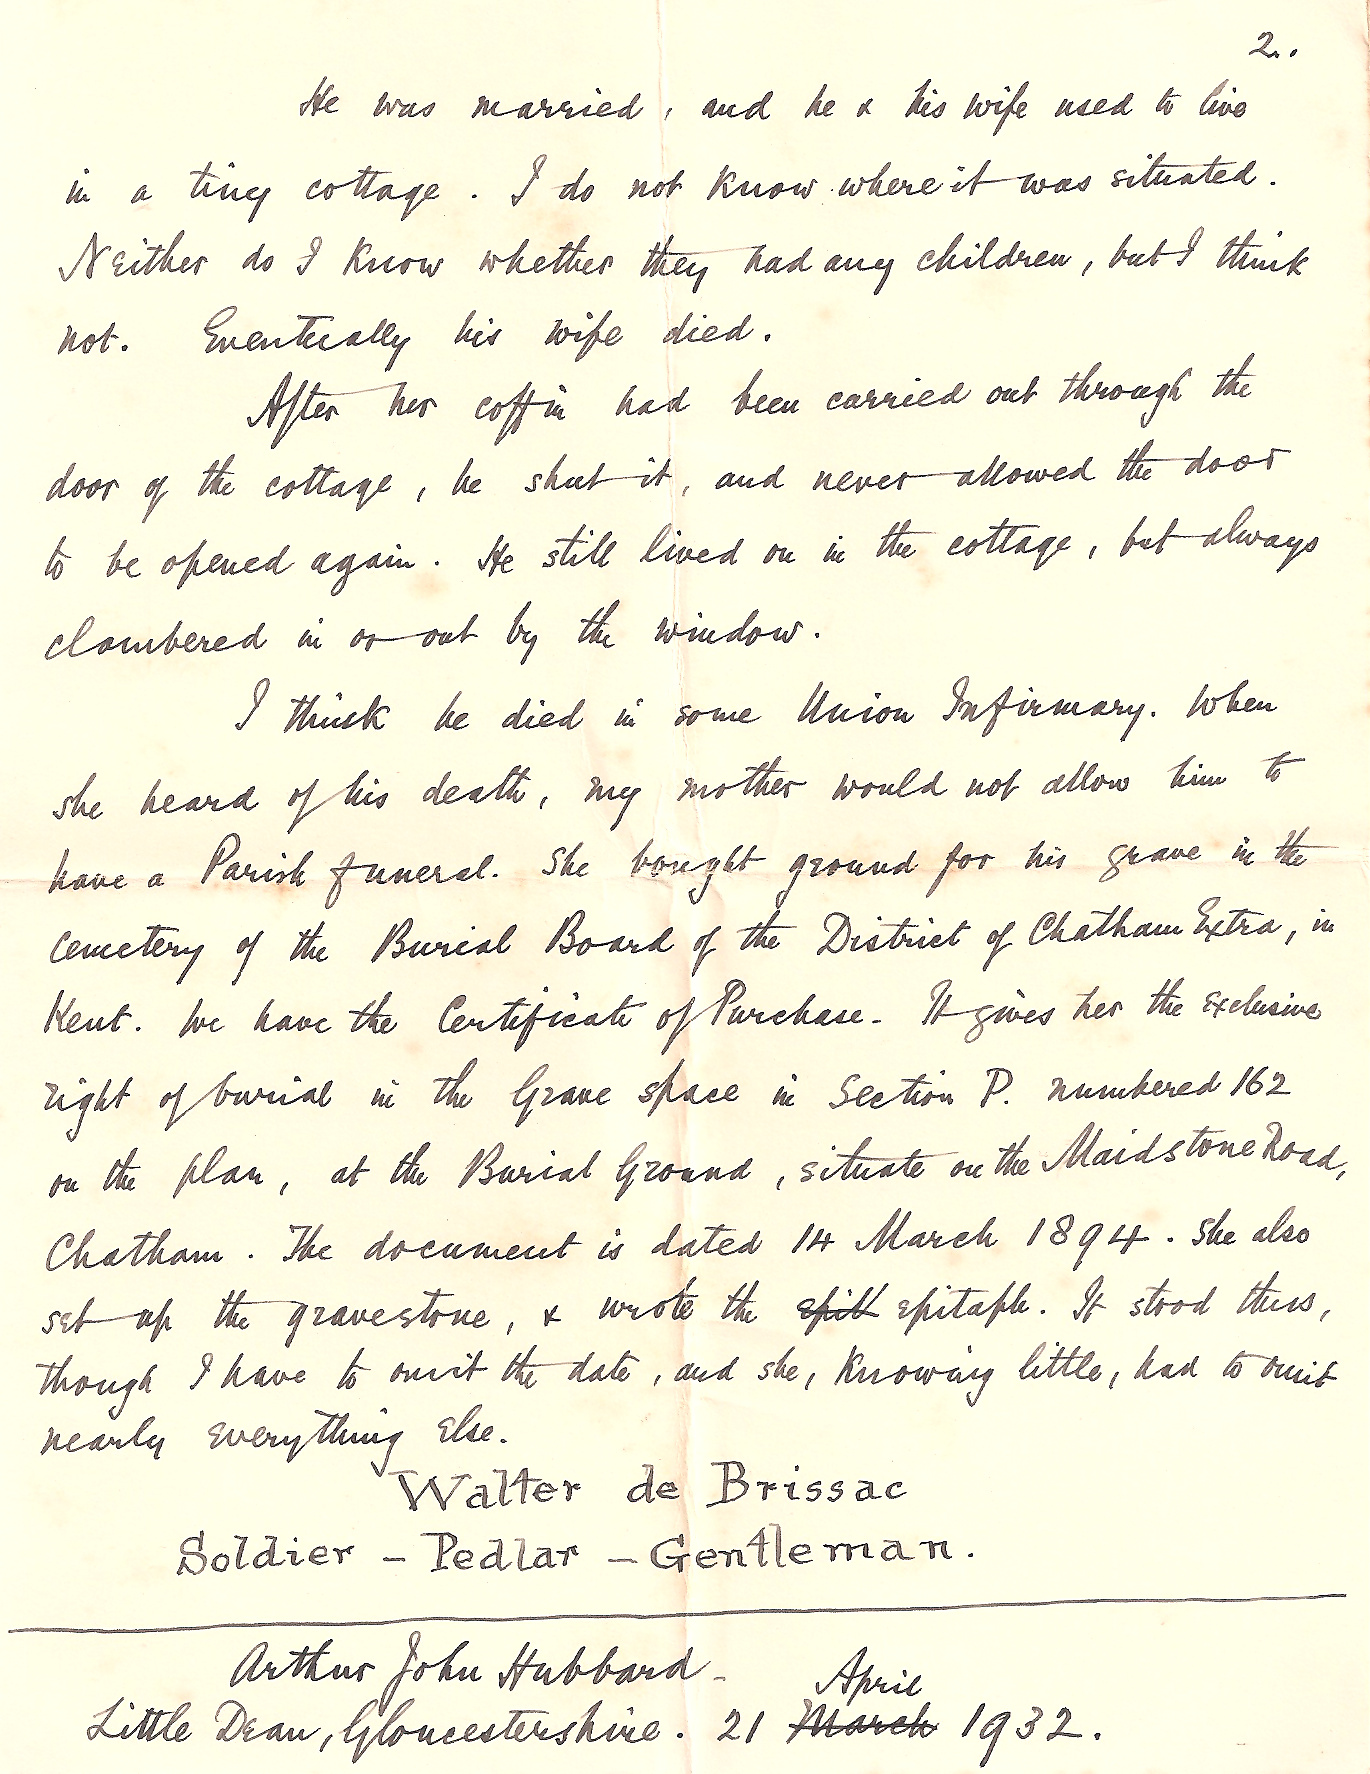 2.
He was married, and he & his wife used to live
in a tiny cottage. I do not know where it was situated.
Neither do I know whether they had any children, but I think
not. Eventually his wife died.
After her coffin had been carried out through the
door of the cottage, he shut it, and never allowed the door
to be opened again. He still lived on in the cottage, but always
clambered in or out by the window.
I think he died in some Union Infirmary. When
she heard of his death, my mother would not allow him to
have a Parish funeral. She bought ground for his grave in the
cemetery of the Burial Board of the District of Chatham Extra, in
Kent. We have the Certificate of Purchase. It gives her the exclusive
right of burial in the Grave space in Section P. numbered 162
on the plan, at the Burial Ground, situate on the Maidstone Road,
Chatham. The document is dated 14 March 1894. She also
set up the gravestone, & wrote the epit epitaph. It stood thus,
though I have to omit the date, and she, knowing little, had to omit
nearly everything else.
Walter de Brissac
Soldier - Pedlar - Gentleman.
Arthur John Hubbard.
April
Little Dean, Gloucestershire. 21 March 1932.